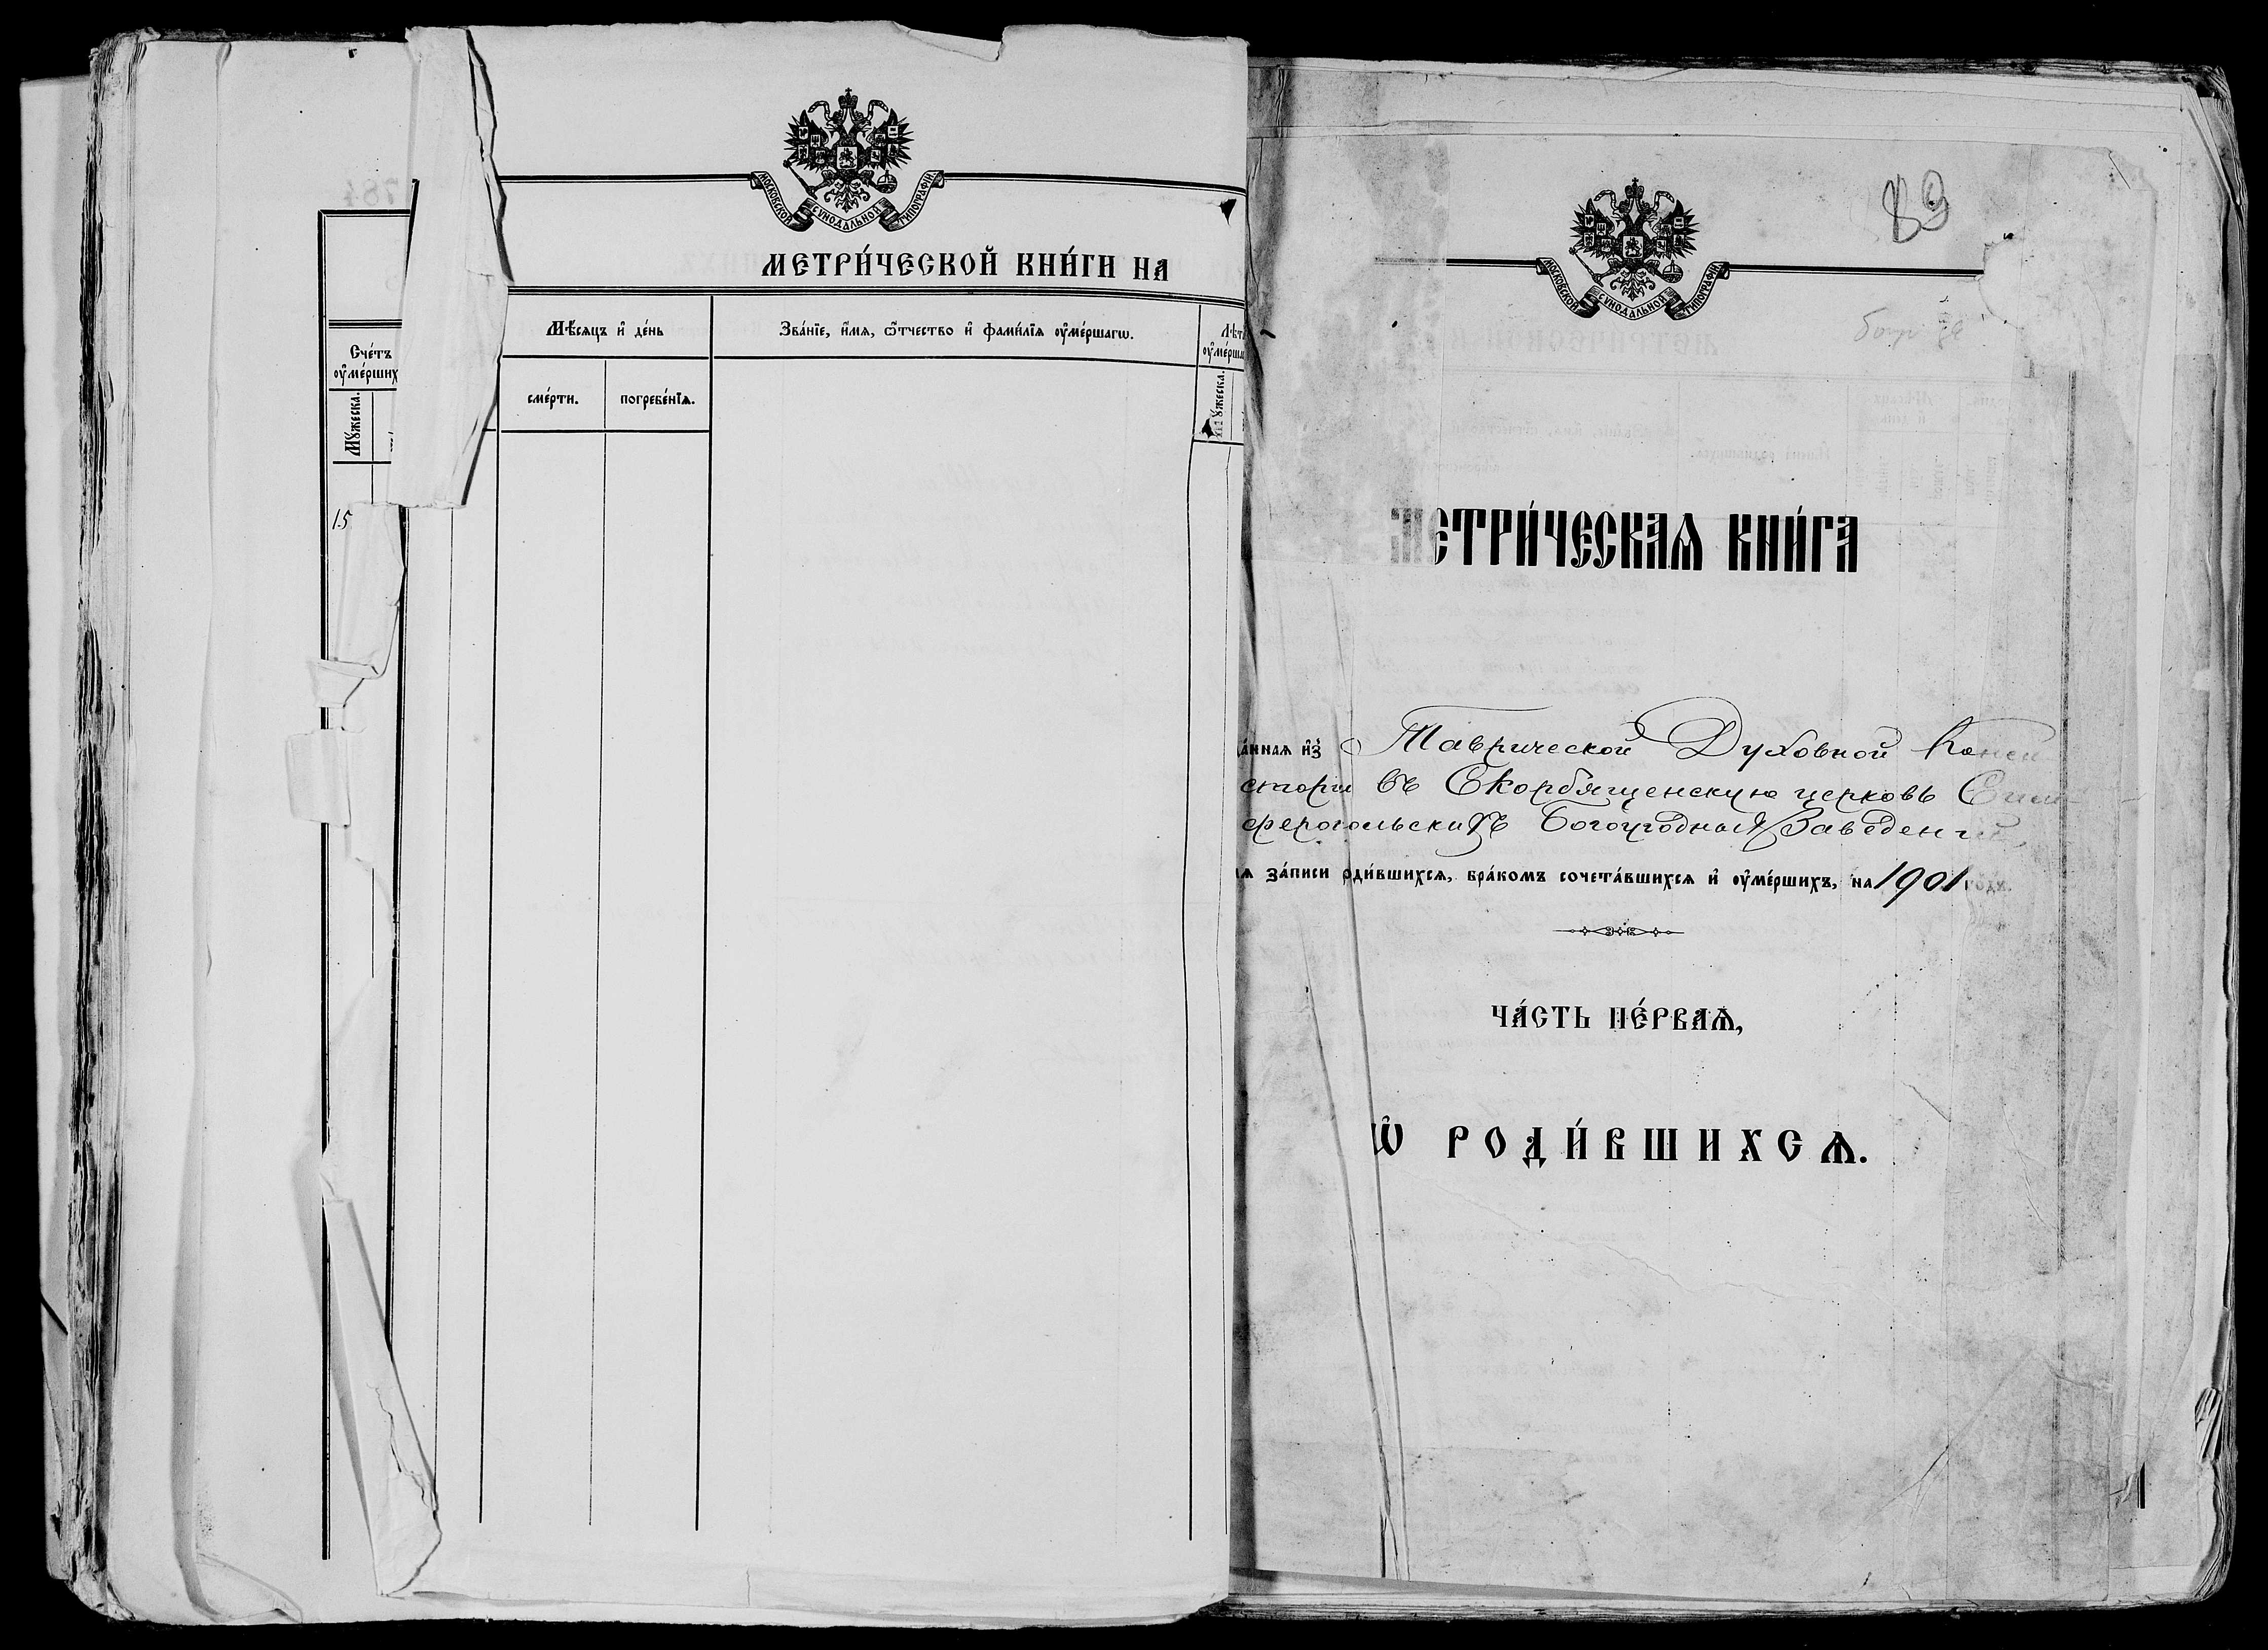 МОСКОВСКОЙ СѴНОДАЛЬНОЙ ТИПОГРАФІИ.
МЕТРИ́ЧЕСКОЙ КНИ́ГИ НА
Сче́тъ
оу҆ме́рших
Мꙋжеска.
Мѣ́сяцъ и҆ де́нь
сме́рти.
погребе́нїѧ.
Зва́нїе, и҆́мѧ, ѻ҆́тчество и҆ фами́лїѧ оу҆ме́ршагѡ.
Лѣт
оу҆ме́рша
Мꙋжеска.
15
89
МОСКОВСКОЙ СѴНОДАЛЬНОЙ ТИПОГРАФІИ.
МЕТРИ́ЧЕСКАѦ КНИ́ГА
да́ннаѧ и҆з̾ Таврической Духовной Конси
сторіи въ Скорбященскую церковь Сим
феропольскихъ Богоугодныхъ Заведеній
за́писи роди́вшихсѧ, бра́комъ сочета́вшихсѧ и҆ оу҆ме́ршихъ, на 1901 го́дъ.
ЧА́СТЬ ПЕ́РВАѦ,
Ѡ҆ РОДИ́ВШИХСѦ.